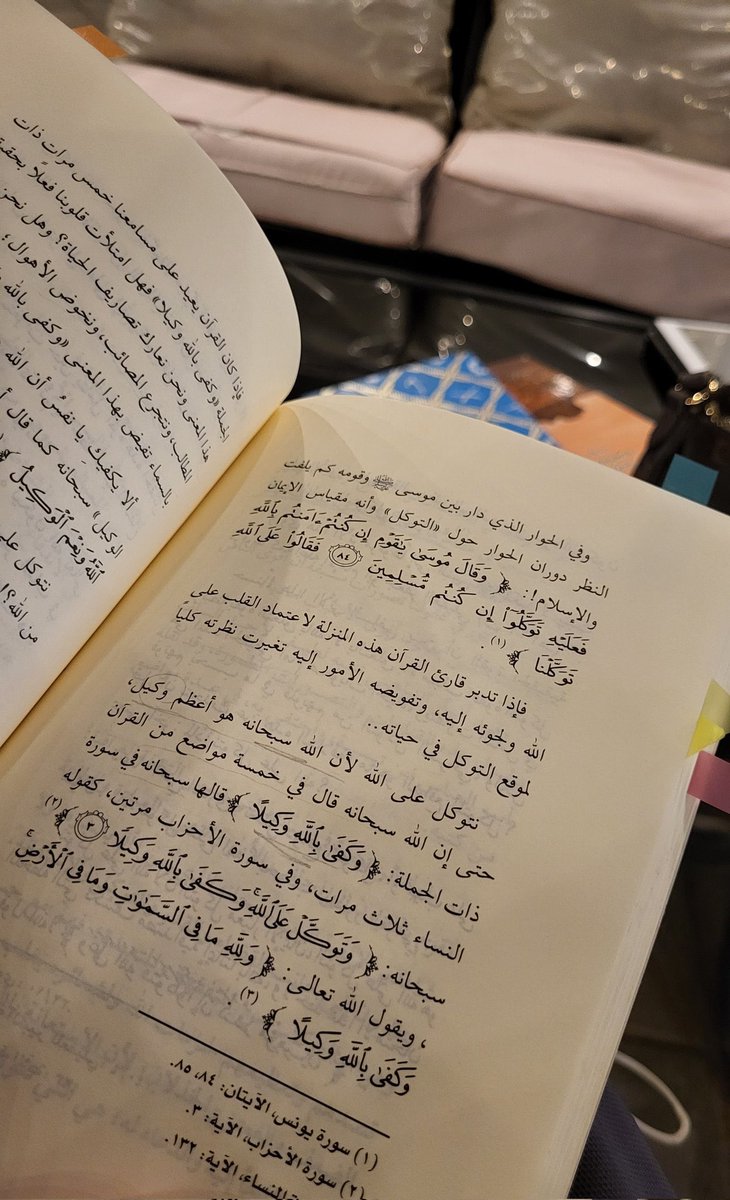 وفي الحوار الذي دار بين موسى ﷺ وقومه كم يلفت
النظر دوران الحوار حول «التوكل» وأنه مقياس الإيمان
والإسلام!: ﴿ وَقَالَ مُوسَىٰ يَٰقَوْمِ إِن كُنتُمْ ءَامَنتُم بِٱللَّهِ
فَعَلَيْهِ تَوَكَّلُوٓا۟ إِن كُنتُم مُّسْلِمِينَ ٨٤ فَقَالُوا۟ عَلَى ٱللَّهِ
تَوَكَّلْنَا ﴾ (١).
فإذا تدبر قارئ القرآن هذه المنزلة لاعتماد القلب على
الله ولجوئه إليه، وتفويضه الأمور إليه تغيرت نظرته كلياً
لموقع التوكل في حياته..
نتوكل على الله لأن الله سبحانه هو أعظم وكيل،
حتى إن الله سبحانه قال في خمسة مواضع من القرآن
ذات الجملة: ﴿ وَكَفَىٰ بِٱللَّهِ وَكِيلًا ﴾ قالها سبحانه في سورة
النساء ثلاث مرات، وفي سورة الأحزاب مرتين، كقوله
سبحانه: ﴿ وَتَوَكَّلْ عَلَى ٱللَّهِ ۚ وَكَفَىٰ بِٱللَّهِ وَكِيلًا ٣ ﴾ (٢)
، ويقول الله تعالى: ﴿ وَلِلَّهِ مَا فِى ٱلسَّمَٰوَٰتِ وَمَا فِى ٱلْأَرْضِ ۚ
وَكَفَىٰ بِٱللَّهِ وَكِيلًا ﴾ (٣).
(١) سورة يونس، الآيتان: ٨٤، ٨٥.
(٢) سورة الأحزاب، الآية: ٣.
النساء، الآية: ١٣٢.
فإذا كان القرآن يعيد على مسامعنا خمس مرات ذات
الجملة «وكفى بالله وكيلا» فهل امتلأت قلوبنا فعلاً
هذا المعنى ونحن نعارك تصاريف الحياة؟ وهل نحن
المطالب، ونتجرع المصائب، ونخوض الأهوال
بالسماء تفيض بهذا المعنى «وكفى بالله
ألا يكفيك يا نفسُ أن الله
الوكيل» سبحانه كما قال
ٱللَّهُ وَنِعْمَ ٱلْوَكِيلُ
نتوكل على
من الله؟!